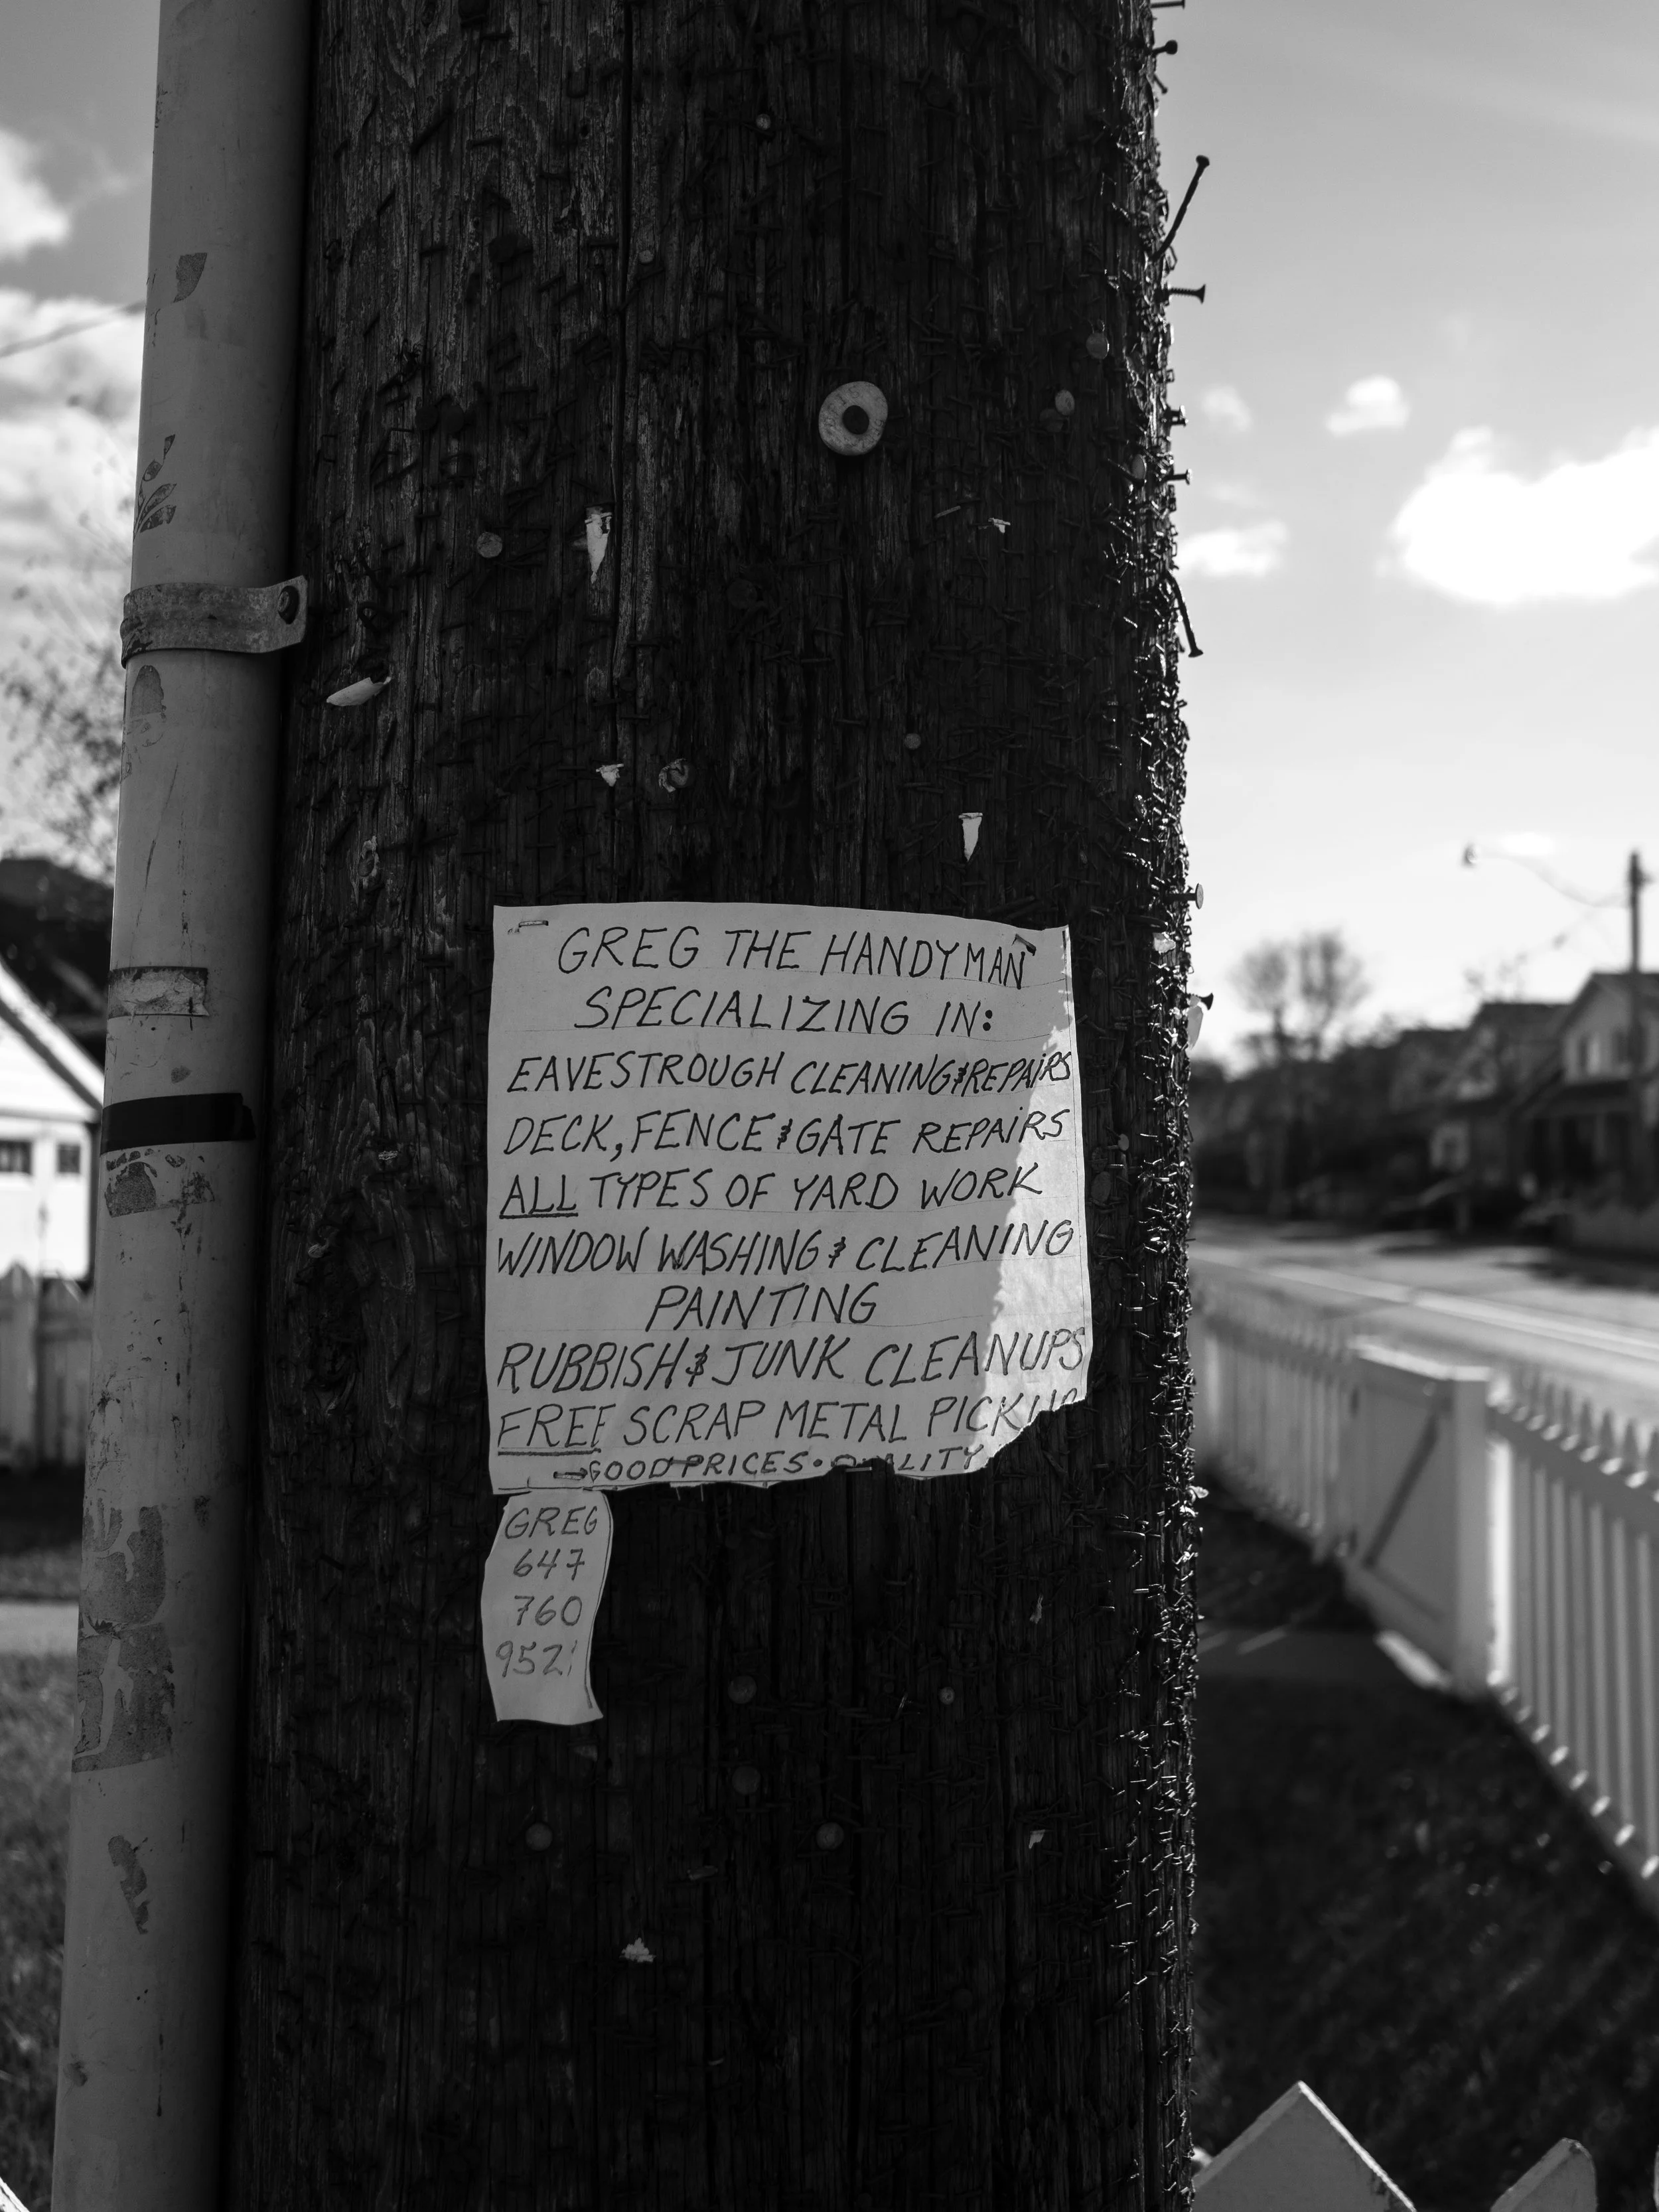 GREG THE HANDYMAN
SPECIALIZING IN:
EAVESTROUGH CLEANING & REPAIRS
DECK, FENCE & GATE REPAIRS
ALL TYPES OF YARD WORK
WINDOW WASHING & CLEANING
PAINTING
RUBBISH & JUNK CLEANUPS
FREE SCRAP METAL PICKUP
→GOOD PRICES • QUALITY
GREG
647
760
9521